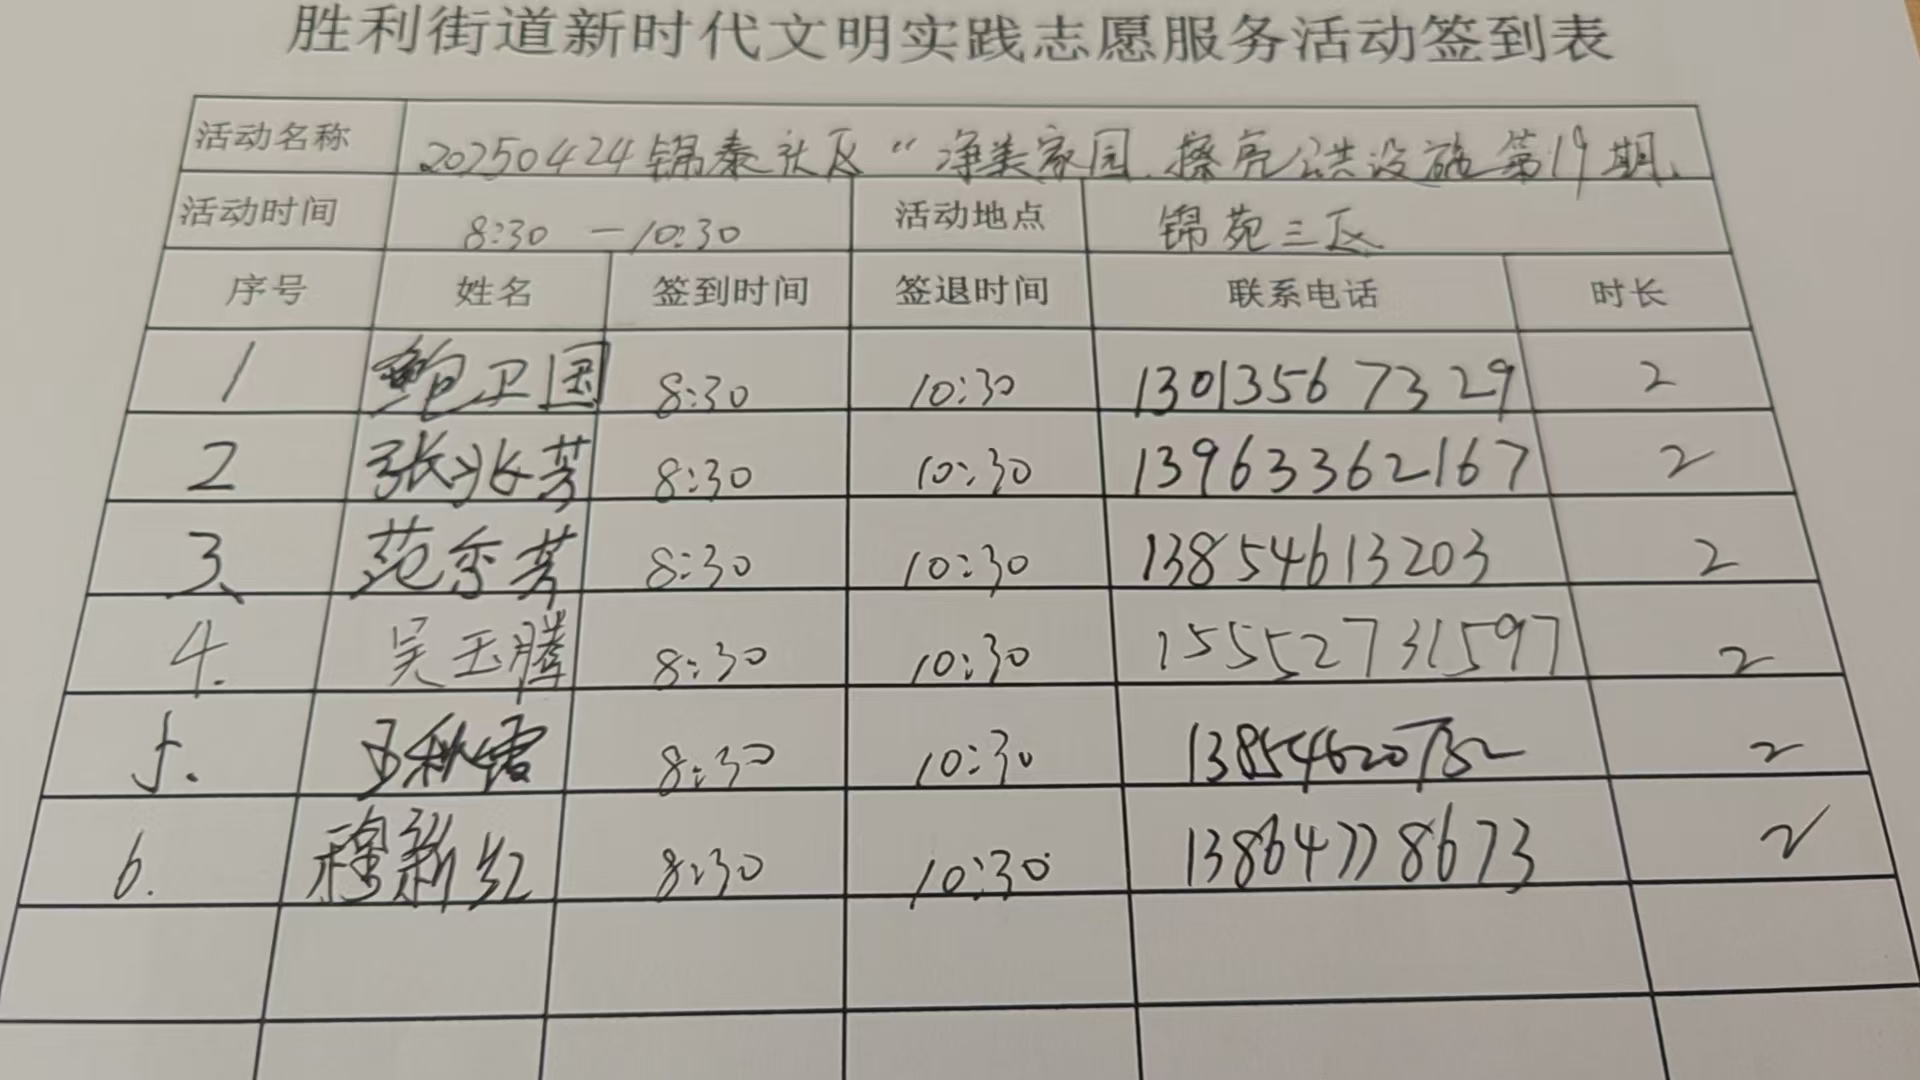 胜利街道新时代文明实践志愿服务活动签到表
活动名称 20250424锦泰社区“净美家园.擦亮公共设施第19期、
活动时间 8:30 — 10:30 活动地点 锦苑三区
序号 姓名 签到时间 签退时间 联系电话 时长
1 鲍卫国 8:30 10:30 13013567329 2
2 张兆芳 8:30 10:30 13963362167 2
3、 范秀芳 8:30 10:30 13854613203 2
4. 吴玉腾 8:30 10:30 15552731597 2
5. 王秋霞 8:30 10:30 2
6. 穆新红 8:30 10:30 13864778673 2